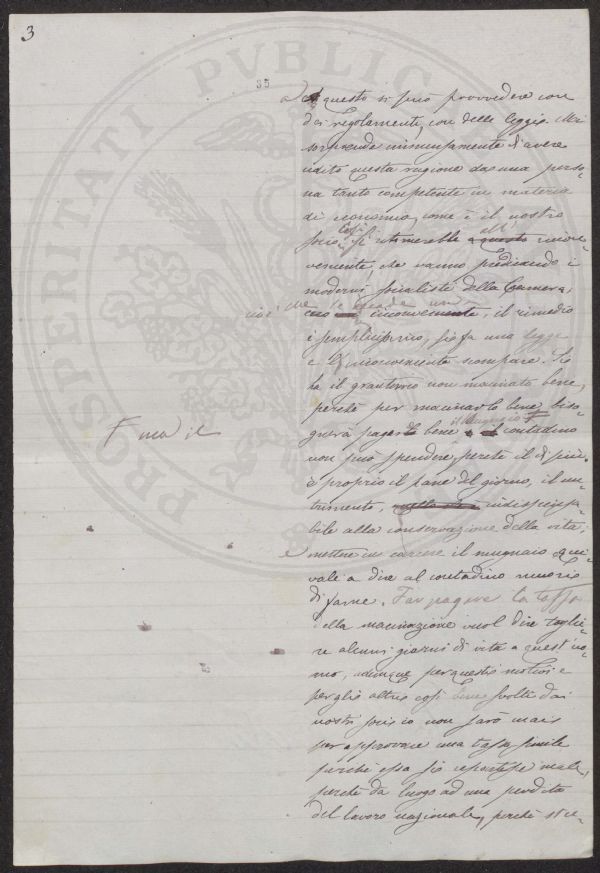 3
PROSPERITATI PVBLIC
35
a questo si può provvedere con
dei regolamenti, con delle leggi. Mi
sorprende immensamente d'avere
udito questa ragione da una perso-
na tanto competente in materia
di economia, come è il nostro
socio. Così si rimanebbe a questo all' inconve-
niente, che vanno predicando i
moderni socialisti della Camera,
cioè che se vi è un
inconveniente, il rimedio
è semplicissimo, si fa una legge
e l'inconveniente scompare. Si
ha il granturco non macinato bene,
perché per macinarlo bene biso-
gnerà pagare bene il mugnaio F
il contadino
non può spendere, perché il di più
è proprio il pane del giorno, il nu-
trimento, indispensa-
bile alla conservazione della vita;
F ma il
e mettere in carcere il mugnaio equi-
vale a dire al contadino muori
di fame. Far pagare la tassa
della macinazione vuol dire toglie-
re alcuni giorni di vita a quest'uo-
mo, dunque per questi motivi e
per gli altri così bene svolti dai
nostri soci io non sarò mai
per approvare una tassa simile
perché essa si ripartisce male,
perché dà luogo ad una perdita
del lavoro nazionale, perché ste-